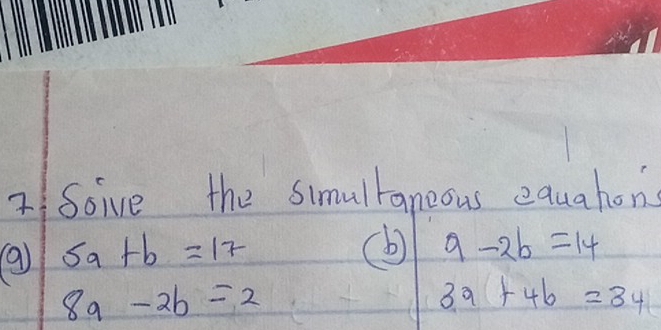 7. Solve the simultaneous equations
(a) 5a + b = 17 (b) a - 2b = 14
8a - 2b = 2 3a + 4b = 34